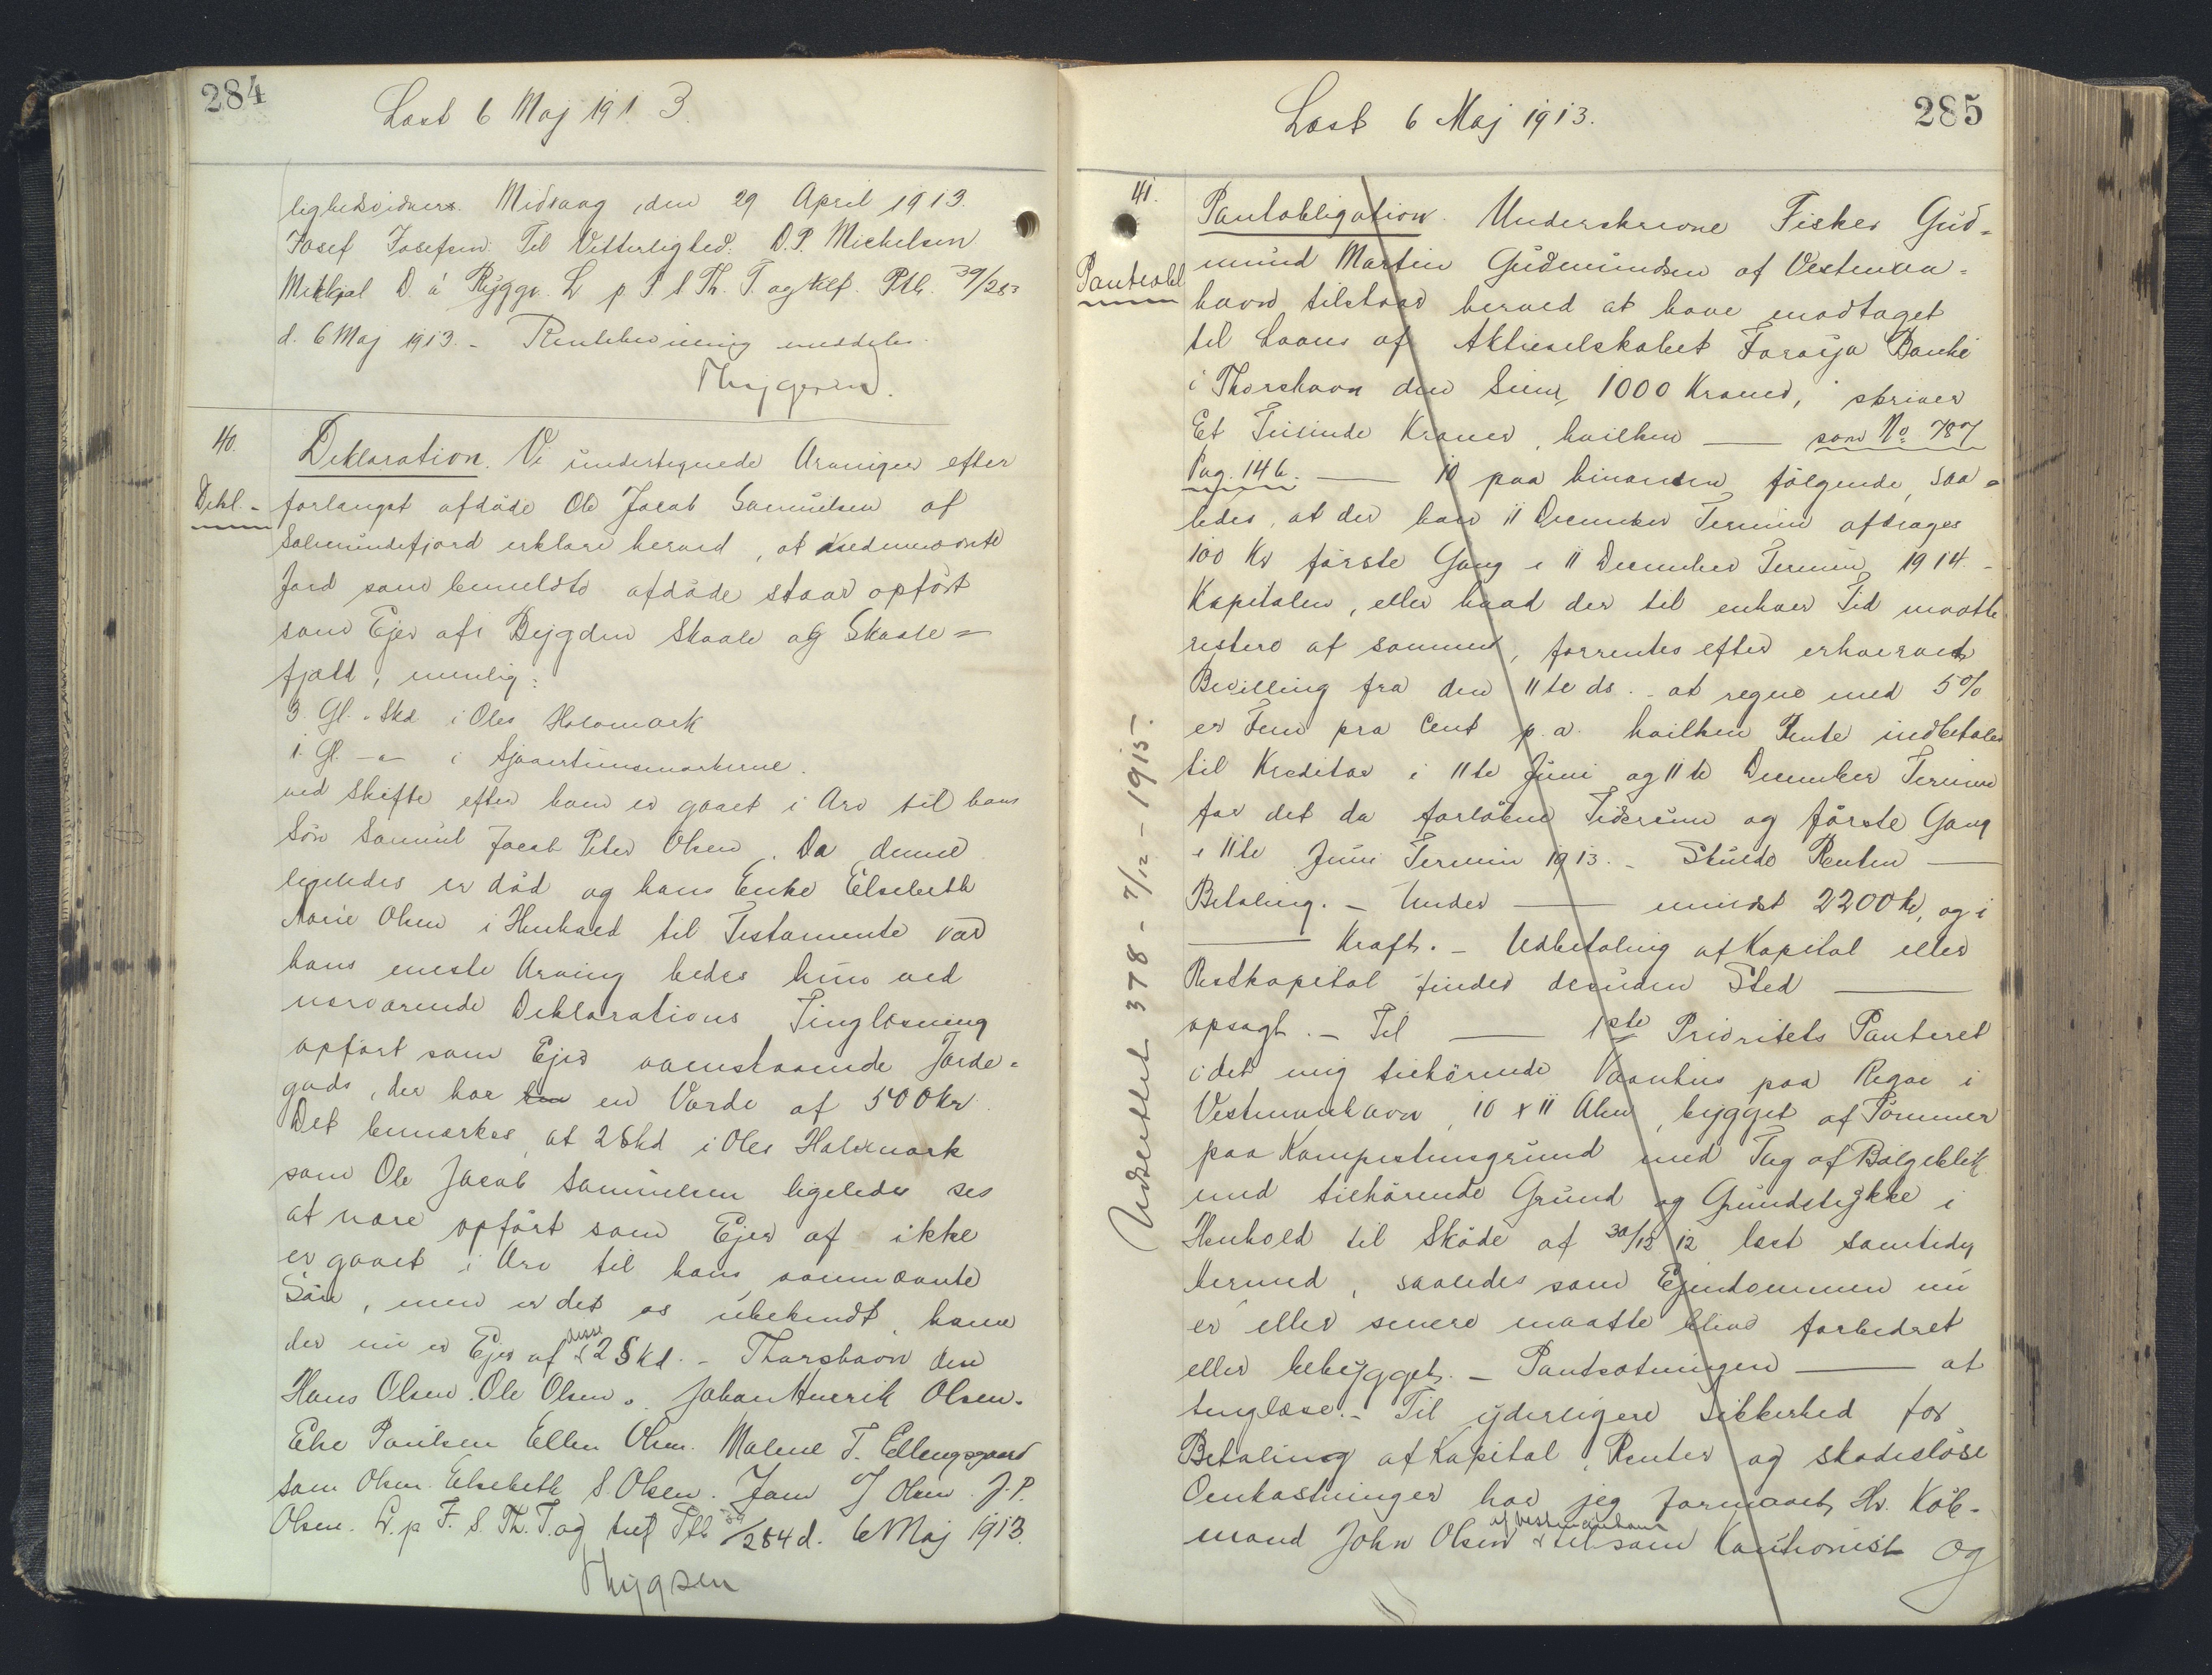 284
Læst 6 Maj 1913.
lighedsvidners. Midvaag, den 29 April 1913.
Josef Josefsen. Til Vitterlighed: D.P. Michelsen
Mikkjal D. á Ryggi. L p. F. S. Th. T. og ref. Ptb. 39/283
d. 6 Maj 1913. - Rentebevisning meddeles.
Thygesen.
40.
Dekl.-
Deklaration. Vi undertegnede Arvinger efter
forlængst afdøde Ole Jacob Samuelsen af
Solmundefjord erklære herved, at nedennævnte
Jord som bemeldte afdøde staar opført
som Ejer af i Bygden Skaale og Skaale=
fjæld, nemlig:
3 Gl. Skd i Oles Halvmark
1 Gl. -"- i
ved Skifte efter ham er gaaet i Arv til hans
Søn Samuel Jacob Peter Olsen. Da denne
ligeledes er død og hans Enke Elsebeth
Marie Olsen i Henhold til Testamente var
hans eneste Arving bedes hun ved
nærværende Deklarations Tinglæsning
opført som Ejer ovenstaaende Jorde=
gods, der har en Værdi af 500 Kr.
Det bemærkes, at 2 Skd i Oles Halvmark
som Ole Jacob Samuelsen ligeledes ses
at være opført som Ejer af ikke
er gaaet i Arv til hans ovennævnte
Søn, men er det os ubekendt, hvem
der nu er Ejer af disse 2 Skd. - Thorshavn den
Hans Olsen. Ole Olsen. Johan Henrik Olsen.
Else Poulsen Ellen Olsen. Malene T. Ellingsgaard
Sam Olsen. Elsebeth S. Olsen. Jens J Olsen. J.P.
Olsen. L. p F. S. Th. T. og ref Ptb 39/284 d. 6 Maj 1913.
Thygesen
285
Læst 6 Maj 1913.
41.
Panteobl
Pantobligation. Underskrevne Fisker Gud=
mund Martin Gudmundsen af Vestman=
havn tilstaar herved at have modtaget
til Laans af Aktieselskabet Føroya Banki
i Thorshavn den Sum 1000 Kroner, skriver
Et Tusinde Kroner, hvilken — som No 787
Pag. 146. — 10 paa hinanden følgende, saa=
ledes, at der hver 11 December Termin afdrages
100 Kr første Gang i 11 December Termin 1914. -
Kapitalen, eller hvad der til enhver Tid maatte
restere af samme, forrentes efter erhvervet
Bevilling fra den 11te ds. at regne med 5%
er Fem pro Cent p.a. hvilken Rente indbetales
til Kreditor i 11te Juni og 11te December Termin
for det da forløbne Tidsrum og første Gang
i 11te Juni Termin 1913. - Skulde Renten —
Betaling. - Under — mindst 2200 Kr, og i
— Kraft. - Udbetaling af Kapital eller
Restkapital finder desuden Sted —
opsagt. - Til — 1ste Prioritets Panteret
i det mig tilhørende Vaanhus paa i
Vestmanhavn, 10 x 11 Alen, bygget af Tømmer
paa Kampestensgrund med Tag af Bølgeblik
med tilhørende Grund og Grundstykke i
Henhold til Skøde af 30/12 12 læst samtidig
hermed, saaledes som Ejendommen nu
er eller senere maatte blive forbedret
eller bebygget. - Pantsætningen — at
tinglæse. - Til yderligere Sikkerhed for
Betaling af Kapital, Renter og skadesløse
Omkostninger har jeg formaaet Hr. Køb=
mand John Olsen af Vestmanhavn til som Kautionist og
Udslettet 378 - 7/12 - 1915.